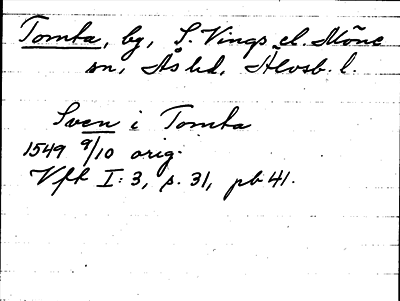 Tomta, by, S. Vings el. Mōne
sn, Ås hd, Älvsb. l.
Sven i Tomta
1549 9/10 orig.
Vfk I: 3, s. 31, pb 41.